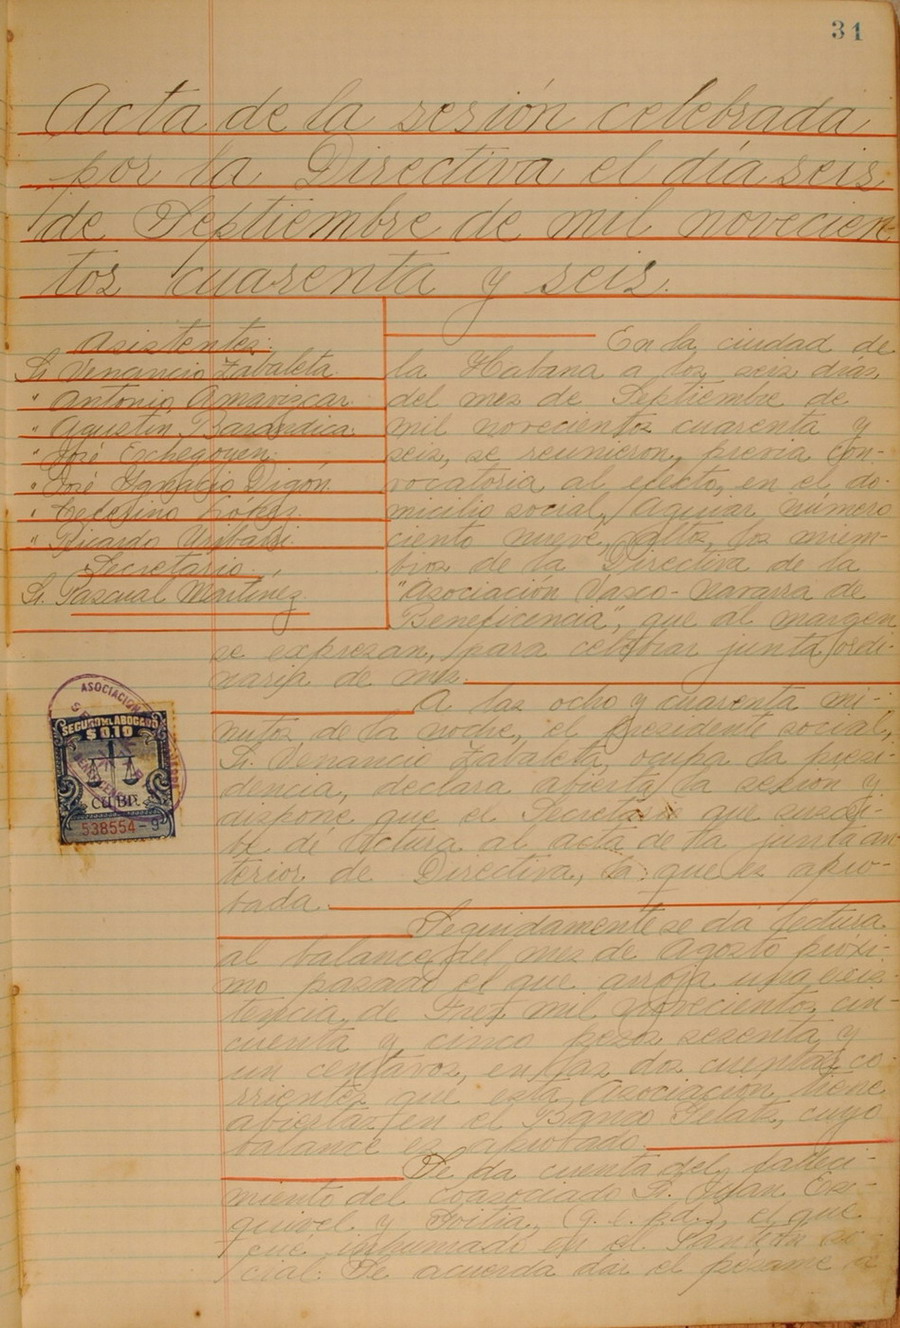 31
Acta de la sesión celebrada
por la Directiva el día seis
de Septiembre de mil novecien-
tos cuarenta y seis.
Asistentes:
Sr. Venancio Zabaleta
" Antonio Amavizcar
" Agustín Barandica
" José Echegoyen
" José Ignacio Digón
" Ceferino López
" Ricardo Uribarri
Secretario
Sr. Pascual Martínez
En la ciudad de
la Habana a los seis días
del mes de Septiembre de
mil novecientos cuarenta y
seis, se reunieron, previa con-
vocatoria al efecto, en el do-
micilio social, Aguiar número
ciento nueve, altos, los miem-
bros de la Directiva de la
"Asociación Vasco-Navarra de
Beneficencia", que al margen
se expresan, para celebrar junta ordi-
naria de mes.
A las ocho y cuarenta mi-
nutos de la noche, el presidente social,
Sr. Venancio Zabaleta, ocupa la presi-
dencia, declara abierta la sesión y
dispone que el Secretario que suscri-
be dé lectura al acta de la junta an-
terior de Directiva, la que es apro-
bada.
ASOCIACION
SEGURO DEL ABOGADO
$0.10
CUBA
538554-9
Seguidamente se da lectura
al balance del mes de Agosto próxi-
mo pasado el que arroja una exis-
tencia de Tres mil novecientos cin-
cuenta y cinco pesos sesenta y
un centavos, en las dos cuentas co-
rrientes que esta Asociación tiene
abiertas en el Banco Gelats, cuyo
balance es aprobado.
Se da cuenta del falleci-
miento del coasociado Sr. Juan Es-
quivel y Goitia, (q.e.p.d.), el que
fué inhumado en el Panteón so-
cial. Se acuerda dar el pésame a